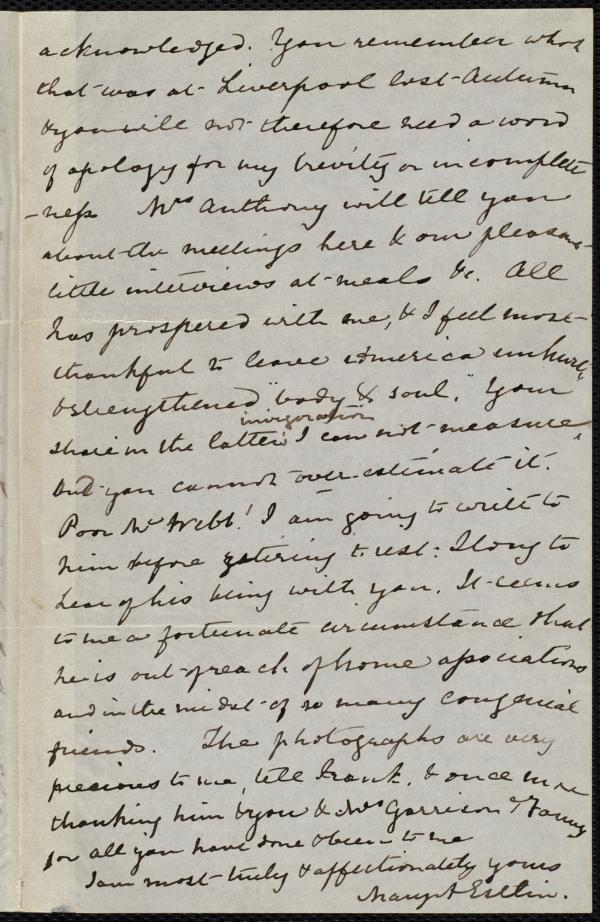 acknowledged. You remember what
that was at Liverpool last Autumn
& you will not therefore need a word
of apology for my brevity or incomplete
-ness Mrs Anthony will tell you
about the meetings here & our pleasant
little interviews at meals &c. All
has prospered with me, & I feel most
thankful to leave America unhurt,
& strengthened "body & soul." Your
share in the latter invigoration I can not measure,
but you cannot over-estimate it.
Poor Mr Webb! I am going to write to
him before retiring to rest: I long to
hear of his being with you. It seems
to me a fortunate circumstance that
he is out of reach of home associations
and in the midst of so many congenial
friends. The photographs are very
precious to me, tell Frank, & once more
thanking him & you & Mrs Garrison & Fanny
for all you have done & been to me
I am most truly & affectionately yours
Mary A Estlin.